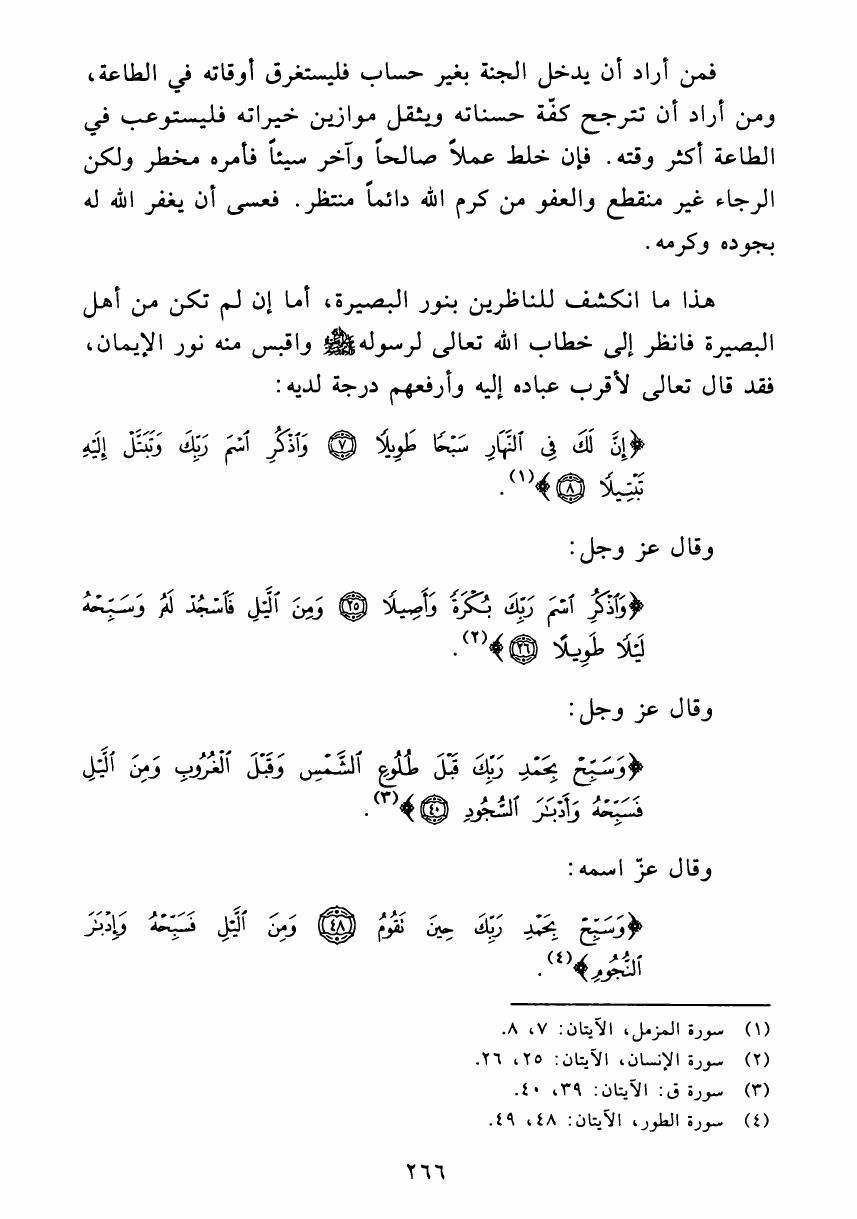 فمن أراد أن يدخل الجنة بغير حساب فليستغرق أوقاته في الطاعة،
ومن أراد أن تترجح كفّة حسناته ويثقل موازين خيراته فليستوعب في
الطاعة أكثر وقته. فإن خلط عملاً صالحاً وآخر سيئاً فأمره مخطر ولكن
الرجاء غير منقطع والعفو من كرم الله دائماً منتظر. فعسى أن يغفر الله له
بجوده وكرمه.
هذا ما انكشف للناظرين بنور البصيرة، أما إن لم تكن من أهل
البصيرة فانظر إلى خطاب الله تعالى لرسوله ﷺ واقبس منه نور الإيمان،
فقد قال تعالى لأقرب عباده إليه وأرفعهم درجة لديه:
﴿إِنَّ لَكَ فِي ٱلنَّهَارِ سَبْحًا طَوِيلًا ٧ وَٱذْكُرِ ٱسْمَ رَبِّكَ وَتَبَتَّلْ إِلَيْهِ
تَبْتِيلًا ٨﴾(١).
وقال عز وجل:
﴿وَٱذْكُرِ ٱسْمَ رَبِّكَ بُكْرَةً وَأَصِيلًا ٢٥ وَمِنَ ٱلَّيْلِ فَٱسْجُدْ لَهُۥ وَسَبِّحْهُ
لَيْلًا طَوِيلًا ٢٦﴾(٢).
وقال عز وجل:
﴿وَسَبِّحْ بِحَمْدِ رَبِّكَ قَبْلَ طُلُوعِ ٱلشَّمْسِ وَقَبْلَ ٱلْغُرُوبِ وَمِنَ ٱلَّيْلِ
فَسَبِّحْهُ وَأَدْبَـٰرَ ٱلسُّجُودِ ٤٠﴾(٣).
وقال عزّ اسمه:
﴿وَسَبِّحْ بِحَمْدِ رَبِّكَ حِينَ تَقُومُ ٤٨ وَمِنَ ٱلَّيْلِ فَسَبِّحْهُ وَإِدْبَـٰرَ
ٱلنُّجُومِ﴾(٤).
(١) سورة المزمل، الآيتان: ٧، ٨.
(٢) سورة الإنسان، الآيتان: ٢٥، ٢٦.
(٣) سورة ق: الآيتان: ٣٩، ٤٠.
(٤) سورة الطور، الآيتان: ٤٨، ٤٩.
٢٦٦